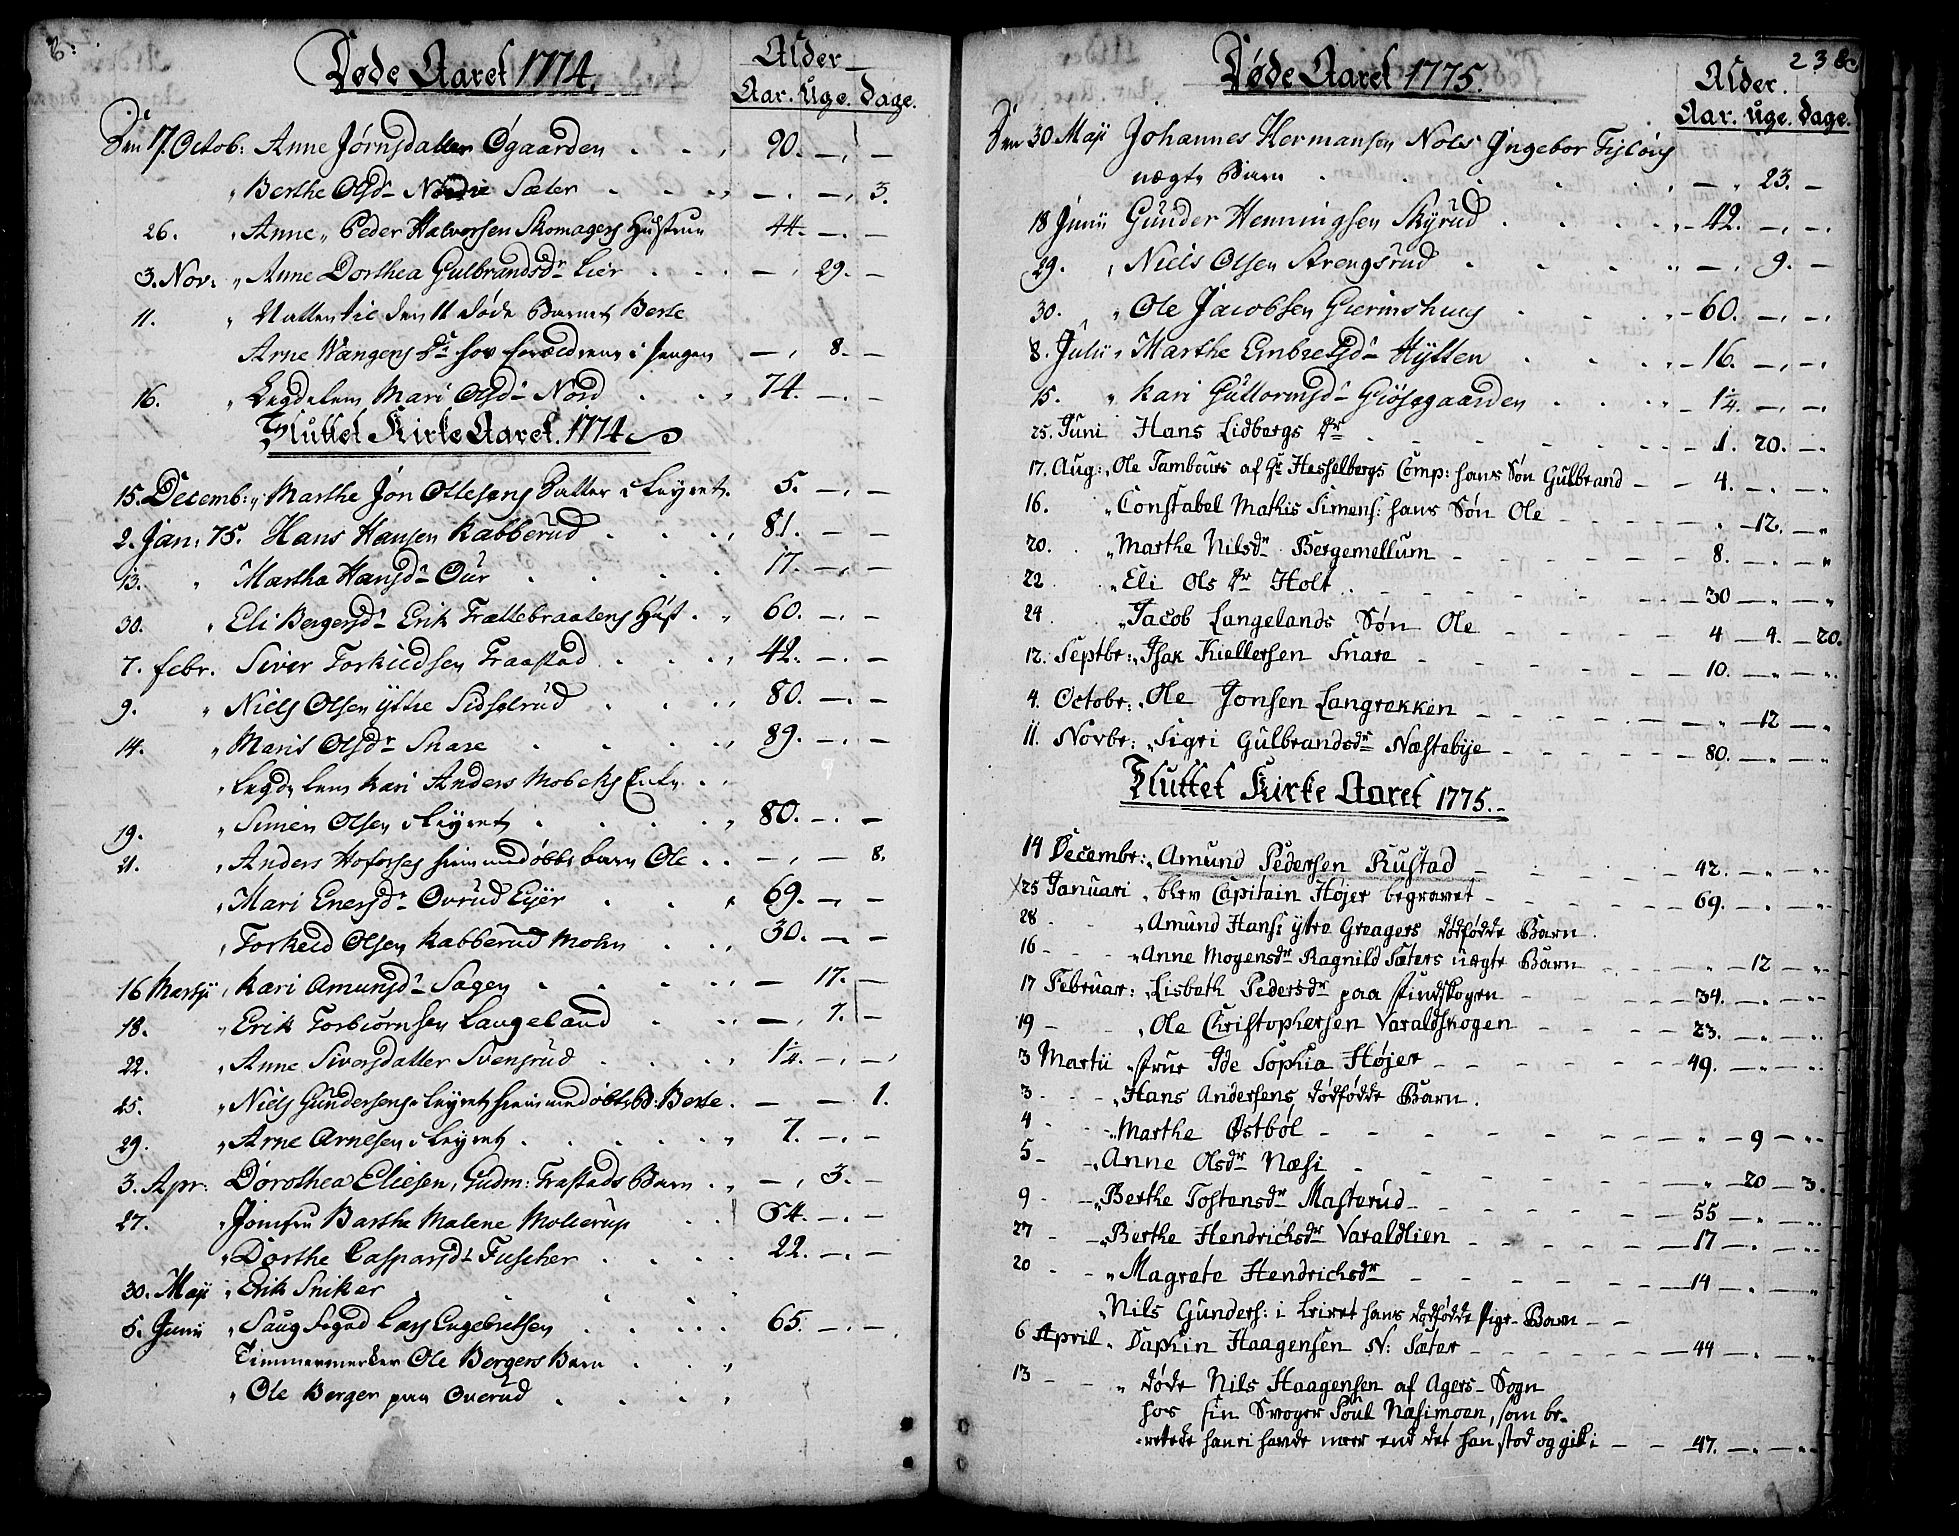 Døde Aaret 1774.
Alder
Aar. Uge. Dage.
Den 17. Octob: Anne Jørnsdatter Øgaarden 90. — —
" Berthe Olsdr Nordre Sæter — — 3.
26. " Anne, Peder Halvorsen Skomagers Hustrue 44. — —
3. Nov: " Anne Dorthea Gulbrandsdr Lier — 29. —
11. " Natten til den 11 døde Barnet Berte
Arne Wangens Dr hos forældrene i sengen — 8. —
16. " Legdelem Mari Olsdr Nord 74. — —
Sluttet Kirke Aaret 1774
15. Decemb: " Marthe Jon Ottesens Datter i Leyret. 5. — —
2. Jan: 75. Hans Hansen Kabberud 81. — —
13. " Martha Hansdr Our 17. — —
30. " Eli Bergersdr Erik Trættebraatens Hust. 60. — —
7. febr. Siver Torkildsen Traastad 42. — —
9. " Niels Olsen yttre Sidselrud 80. — —
14. " Marit Olsdr Snare 89. — —
" Legdelem Kari Anders Mobeks Enke
19. " Simen Olsen i Leyret 80. — —
21. " Anders Hofoss hiemmedøbte barn Ole — — 8.
" Mari Enersdr Overud Eyer 69. — —
" Torkild Olsen Kabberud Mohn 30. — —
16 Martji " Kari Amunsdr Sagen — 17. —
18. " Erik Torbiørnsen Langeland — 7. —
22. " Anne Siversdatter Svensrud 1¼. — —
25. " Niels Gundersens i Leyret hiemmedøbt B: Berte. — — 1.
29. " Arne Arnesen i Leyret 7. — —
3. Apr: Dorothea Eliesen, Gudm: Trastads Barn — 3. —
27. " Jomfru Barthe Malene Mollerup 54. — —
" Dorthe Caspersdr Fuscher 22. — —
30. Maji " Erik Sniker
5. Junii " Saug foged Lars Engebretsen 65 — —
Timmermerker Ole Bergers Barn
" Ole Berger paa Overud
Døde Aaret 1775.
238
Alder.
Aar. Uge. Dage.
Den 30 Maji Johannes Hermansen Nols Ingebor
uægte Barn — 23. —
18 Junii Gunder Henningsen Skyrud 42. — —
29. " Niels Olsen Strengsrud — 9. —
30. " Ole Jacobsen Giermshuus 60. — —
8. Julii " Marthe Embretsdr Hytten 16. — —
15. " Kari Guttormsdr Giøsegaarden 1¼. — —
25. Juni Hans Lidbergs Dr 1. 20. —
17. Aug: " Ole Tambours af Hr Hesselbergs Comp: hans Søn Gulbrand 4. — —
16. " Constabel Mathis Simens: hans Søn Ole " 12. "
20. " Marthe Nilsdr Bergemellum 8. — "
22 " Eli Ols Dr Holt 30 — "
24 " Jacob Langelands Søn Ole 4 — 4. — 20.
12. Septbr: " Isak Kiellersen Snare 10. — "
4. Octobr: " Ole Jonsen Langrekken " 12 — "
11. Novbr: " Sigri Gulbrandsdr Næstebye 80. — "
Sluttet Kirke Aaret 1775.
14 Decembr: " Amund Pedersen Rustad 42. — "
25 Januari " blev Capitain Højer begravet 69. — "
28 " Amund Hans: ytre Greagers dødfødde Barn.
16 " Anne Mogensdr Ragnild Sæters uægte Barn " 12 — "
17 Februar: " Lisbeth Pedersdr paa Findskogen 34. — "
19 " Ole Christophersen Varaldskogen 23. — "
3 Martii " frue Ide Sophia Højer 49. — "
3 " Hans Andersens dødfødde Barn.
4 " Marthe Østbøl " 9 — "
5 " Anne Olsdr Næsi " 20 — 3.
9 " Berthe Tostensdr Masterud 55 — "
27 " Berthe Hendrichsdr Varaldlien 17 — "
20 " Magrete Hendrichsdr 14 — "
" Nils Gunders: i Leiret hans dødfødde Pige-Barn
6 April. Daphin Haagensen N: Sæter 44 — "
13 " døde Nils Haagensen af Agers-Sogn
hos sin Svoger Poul Næsimoen, som be-
rettede han ei havde meer end det han stod og gik i 47. — "